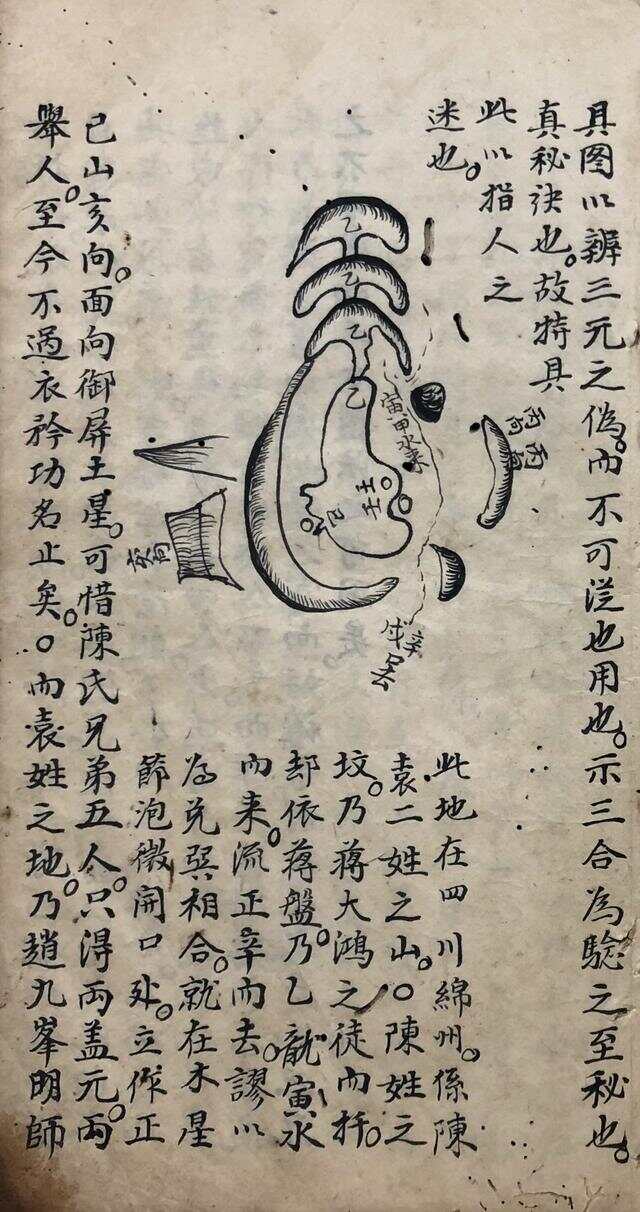 具图以辨三元之偽。而不可従也用也。示三合為驗之至秘也。
真秘訣也。故特具
此以指人之
迷也。
乙
乙
乙
乙
寅甲水来
丙
丙
壬
壬
巳
亥向
辛
此地在四川綿州。係陳
袁二姓之山。〇陳姓之
坟。乃蒋大鴻之徒而扦。
却依蒋盤。乃乙龍寅水
而来。流正辛而去。謬以
為兑巽相合。就在木星
節泡微開口处。立作正
巳山亥向。面向御屏土星。可惜陳氏兄弟五人。只得両盖元。両
舉人。至今不過衣衿功名止矣。〇而袁姓之地。乃趙九峯明師